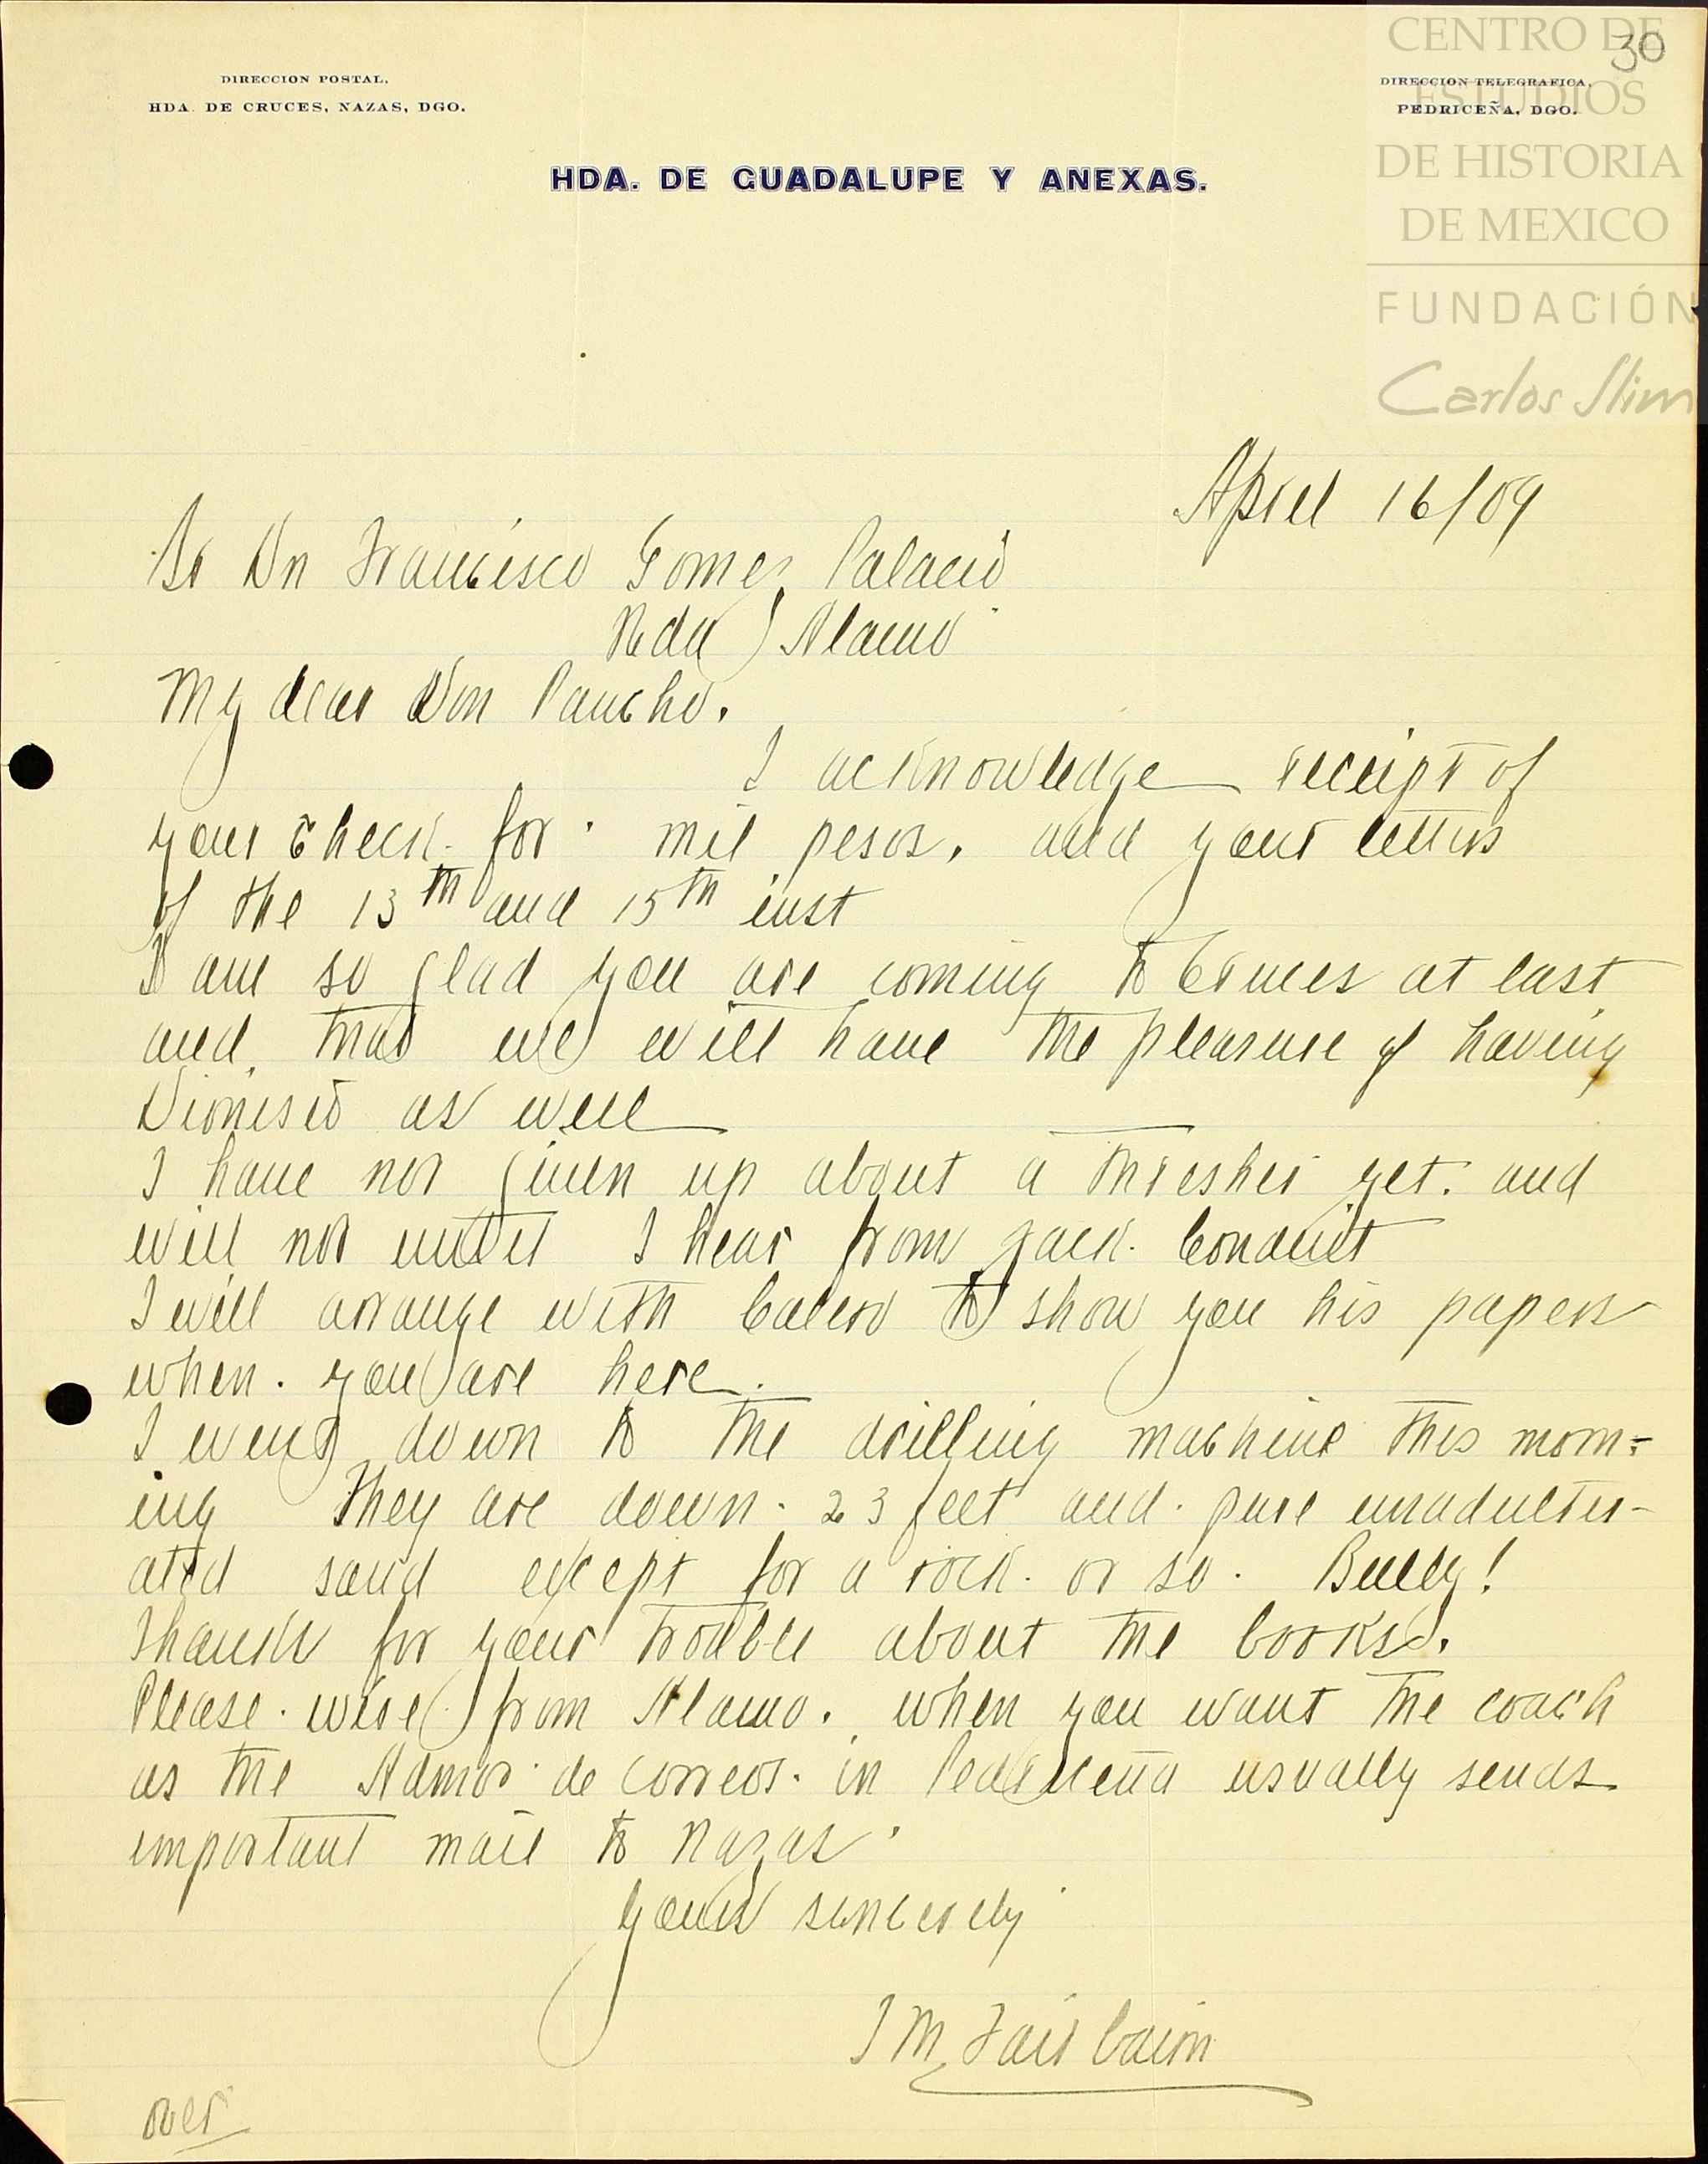 CENTRO DE
ESTUDIOS
DE HISTORIA
DE MEXICO
FUNDACIÓN
Carlos Slim
30
DIRECCION POSTAL,
HDA. DE CRUCES, NAZAS, DGO.
DIRECCION TELEGRAFICA,
PEDRICEÑA, DGO.
HDA. DE GUADALUPE Y ANEXAS.
April 16/09
Sr Dn Francisco Gomez Palacio
Hda Alamo
My dear Don Pancho.
I acknowledge receipt of
your check for mil pesos, and your letters
of the 13th and 15th inst
I am so glad you are coming to Cruces at last
and that we will have the pleasure of having
Dionisio as well
I have not given up about a thresher yet. and
will not until I hear from Jack Conduit
I will arrange with Calero to show you his papers
when you are here.
I went down to the drilling machine this morn-
ing They are down 23 feet and pure unadulter-
ated sand except for a rock or so. Bully!
Thanks for your trouble about the books.
Please wire from Alamo. when you want the coach
as the Admor de correos in Pedriceña usually sends
important mail to Nazas.
Yours sincerely
J M Fairbairn
over